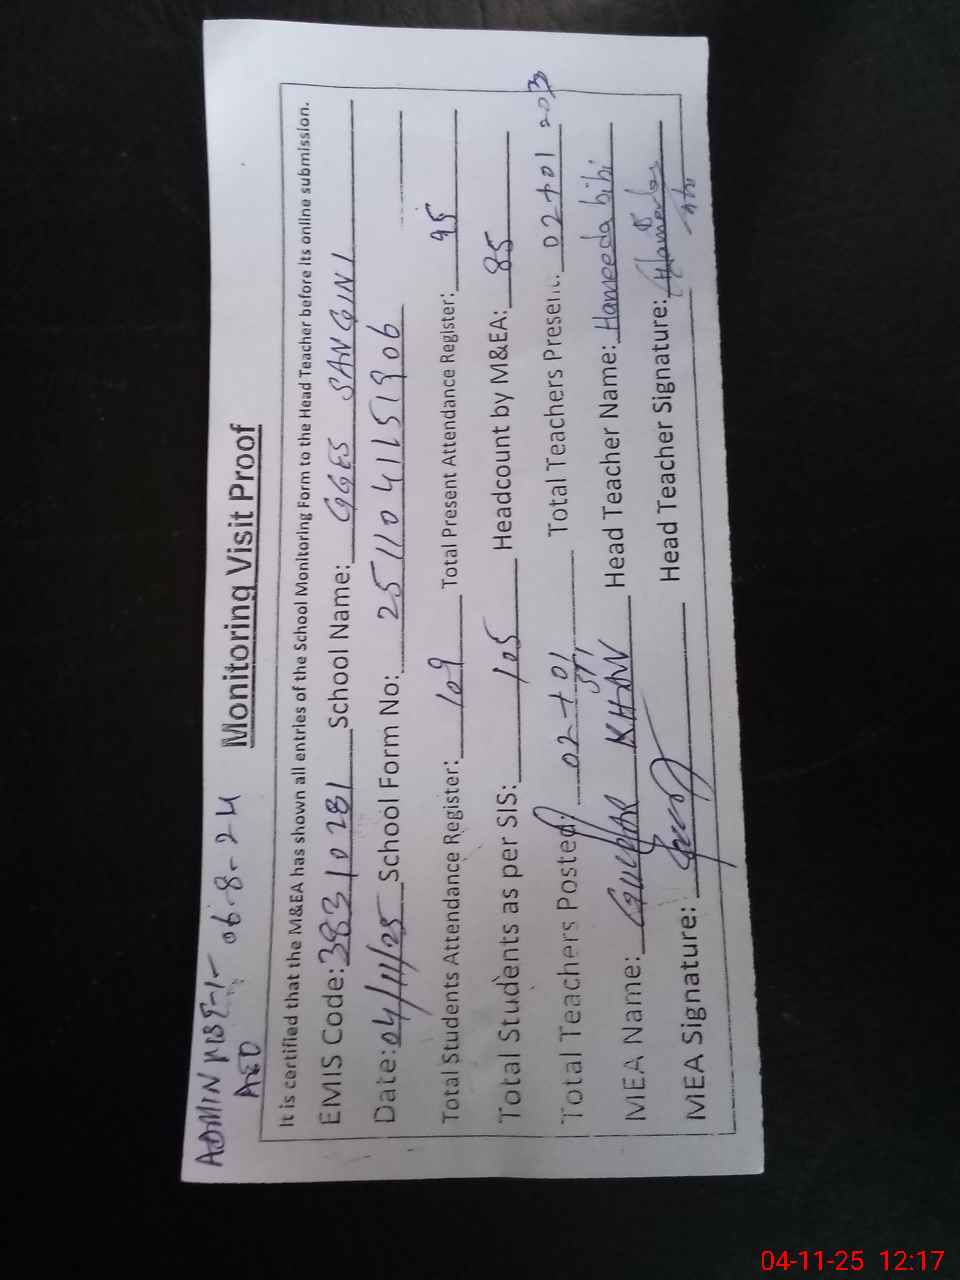 ADMIN 06-8-24
Monitoring Visit Proof
It is certified that the M&EA has shown all entries of the School Monitoring Form to the Head Teacher before its online submission.
EMIS Code: 38310281 School Name: GGES SANGINI
Date: 04/11/25 School Form No: 2511041151906
Total Students Attendance Register: 109 Total Present Attendance Register: 95
Total Students as per SIS: 105 Headcount by M&EA: 85
Total Teachers Posted: 02+01 Total Teachers Present: 02+01
MEA Name: KHAN Head Teacher Name: Hameeda bibi
MEA Signature: Head Teacher Signature:
04-11-25 12:17